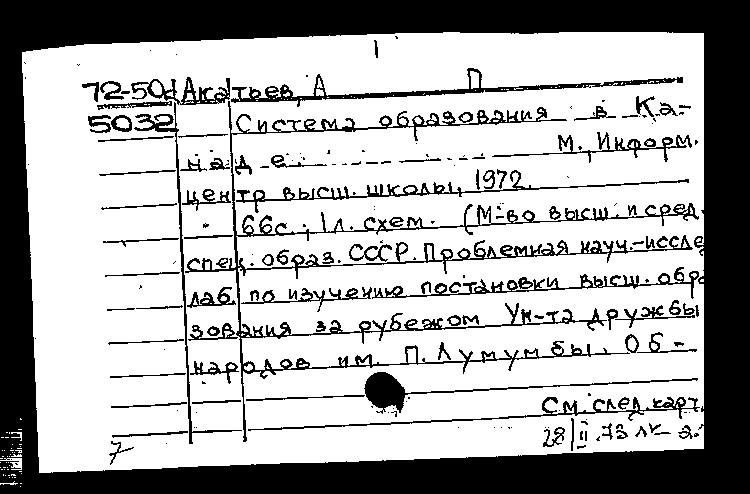 72-50d Акатьев, А П
5032 Система образования в Ка-
наде. М., Информ.
центр высш. школы, 1972.
66с.; 1л. схем. (М-во высш. и сред.
спец. образ. СССР. Проблемная науч.-иссле
лаб. по изучению постановки высш. обра
зования за рубежом Ун-та дружбы
народов им. П. Лумумбы. Об-
См. след. карт.
28/II.73
7